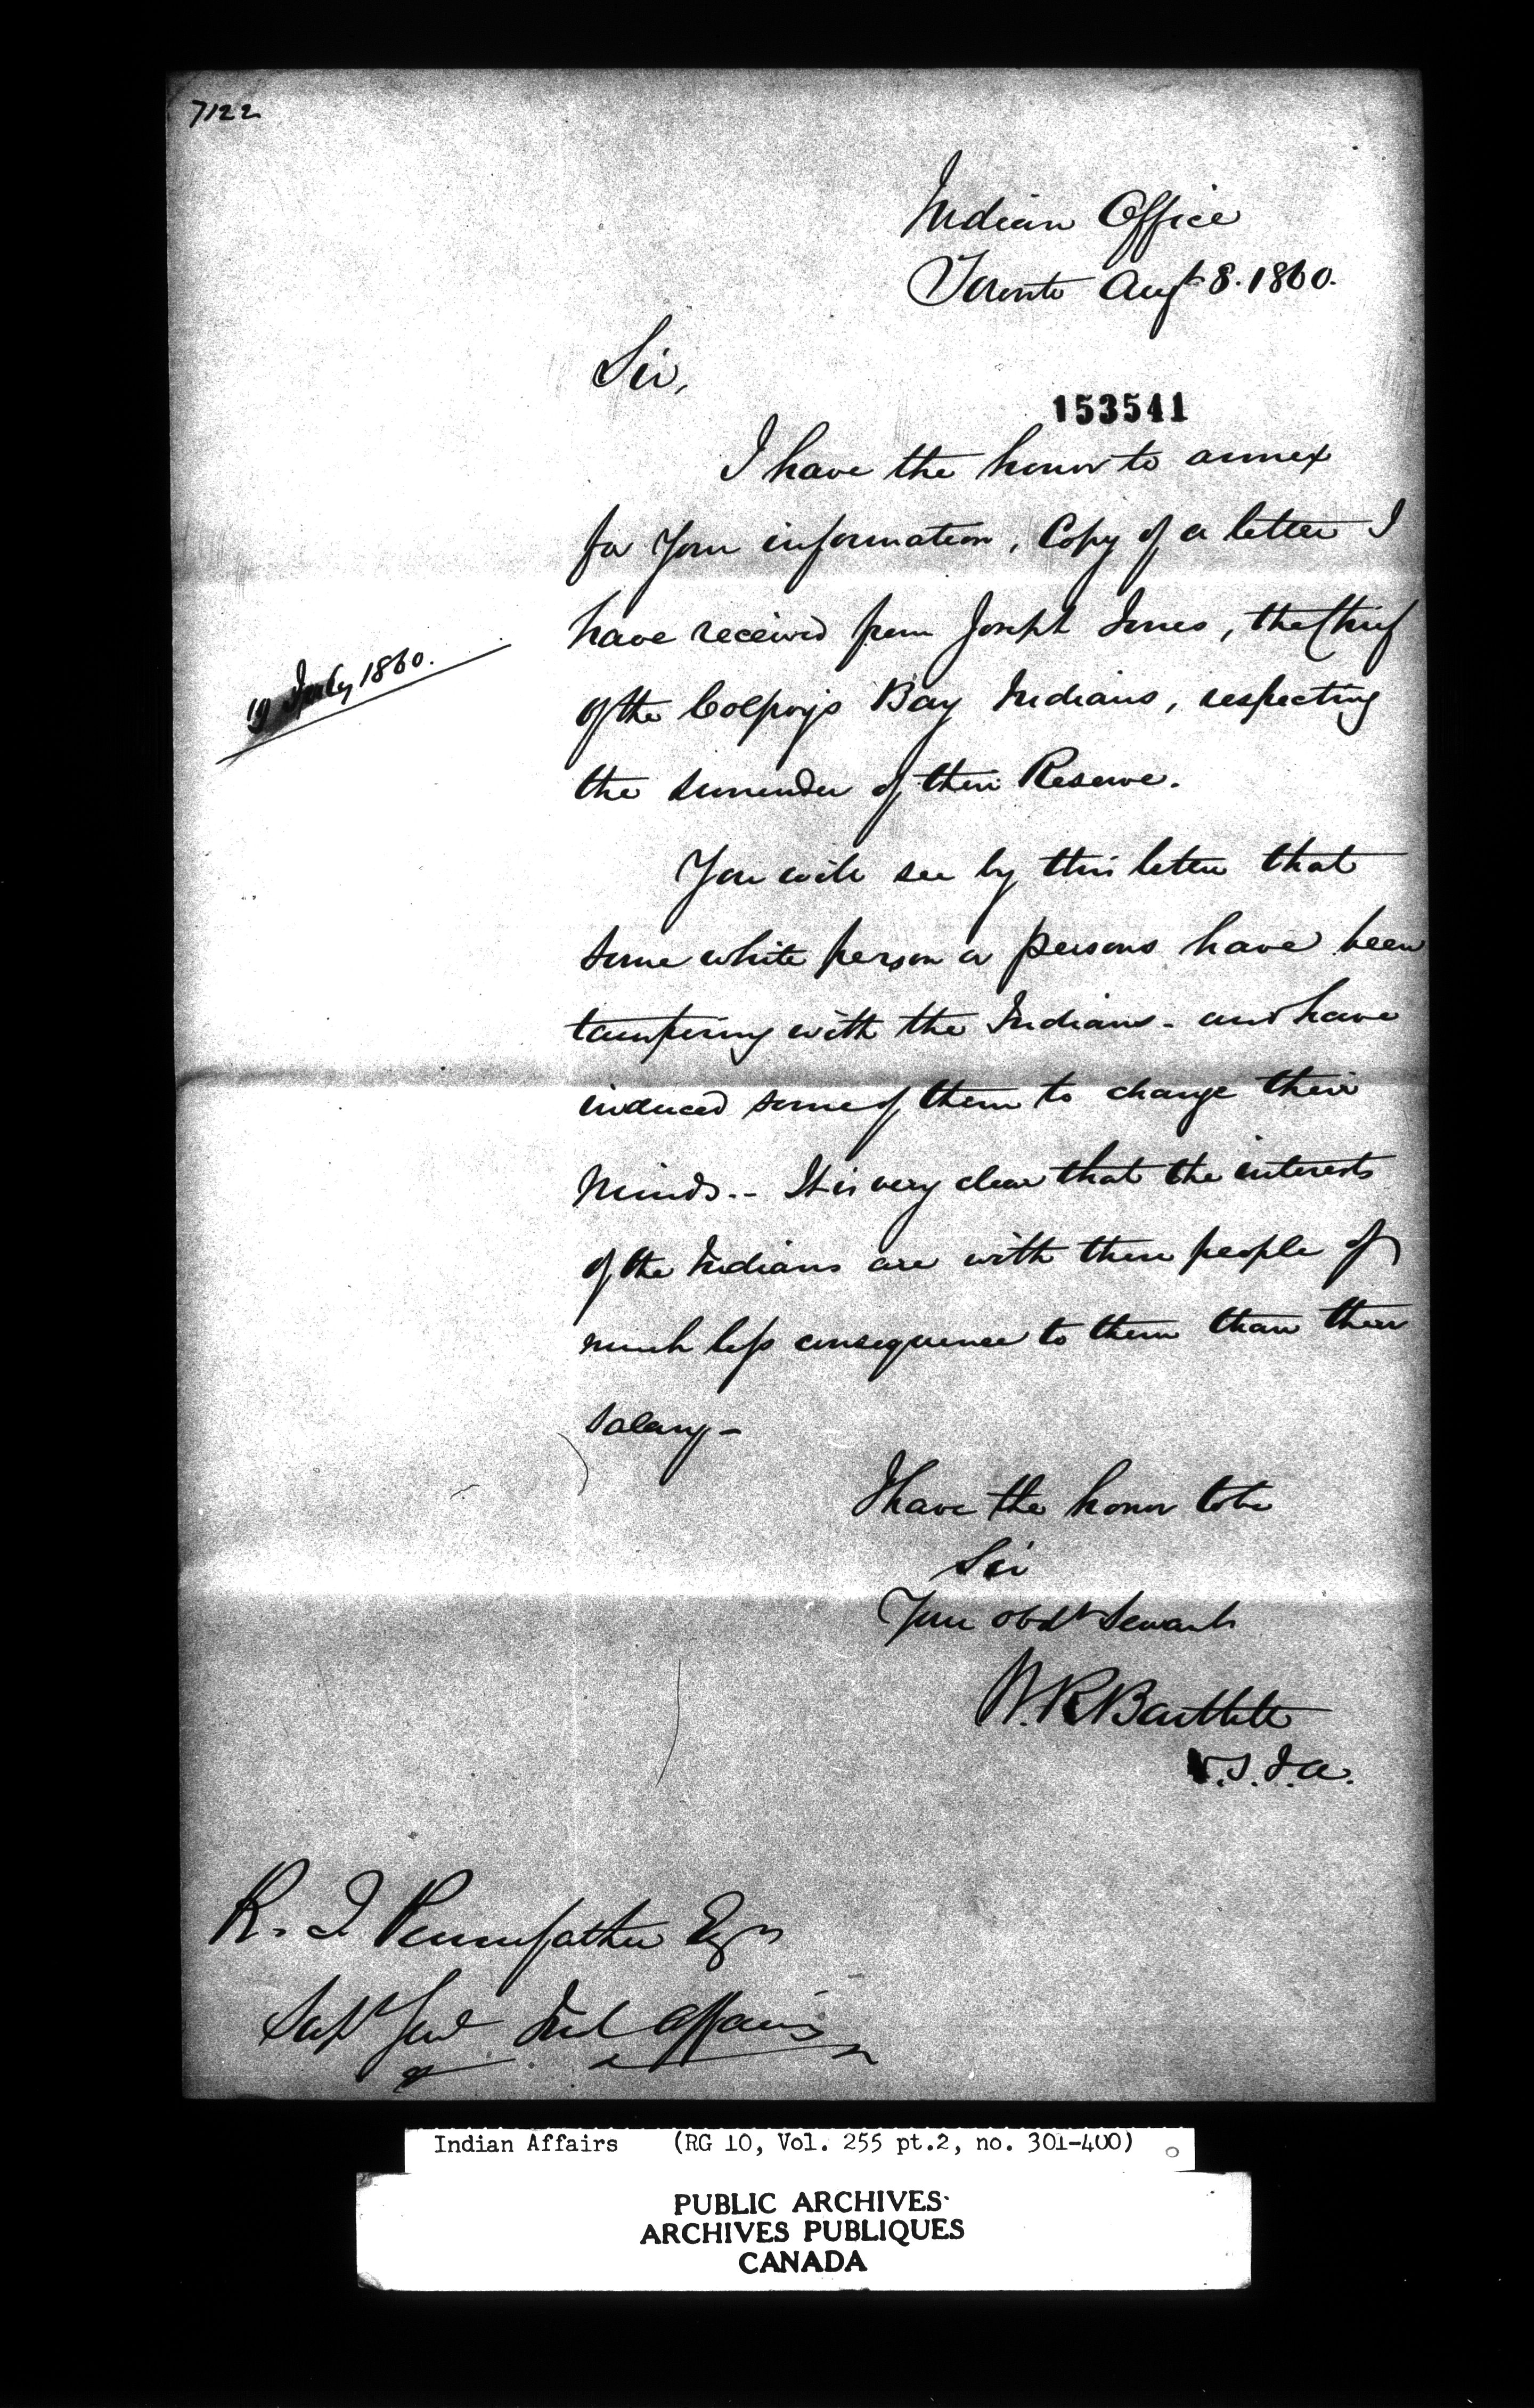 7122
Indian Office
Toronto Augt 8. 1860.
Sir,
153541
I have the honor to annex
for Your information, Copy of a letter I
have received from Joseph Jones, the Chief
19 July 1860.
of the Colpoys Bay Indians, respecting
the surrender of their Reserve.
You will see by this letter that
some white person or persons have been
tampering with the Indians - and have
induced some of them to change their
minds.-- It is very clear that the interests
of the Indians are with these people of
much less consequence to them than their
salary -
I have the honor to be
Sir
Your obdt Servant
W.R. Bartlett
V.S.I.A.
R. T Pennefather Esqr
Supt Genl Ind Affairs
Indian Affairs (RG 10, Vol. 255 pt.2, no. 301-400)
PUBLIC ARCHIVES
ARCHIVES PUBLIQUES
CANADA